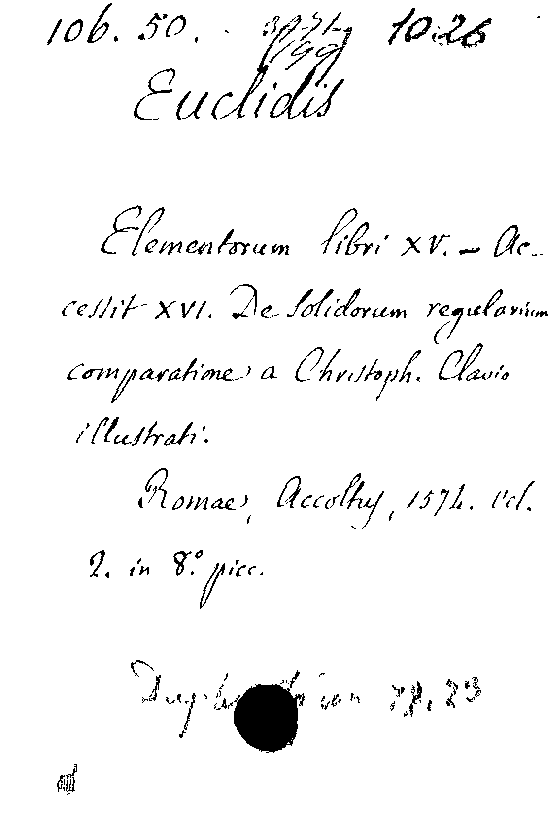 106. 50. 1026
Euclidis
Elementorum libri XV. - Ac-
cessit XVI. De Solidorum regularium
comparatione a Christoph. Clavio
illustrati.
Romae, Accoltus, 1574. Vol.
2. in 8.º picc.
con 78.23